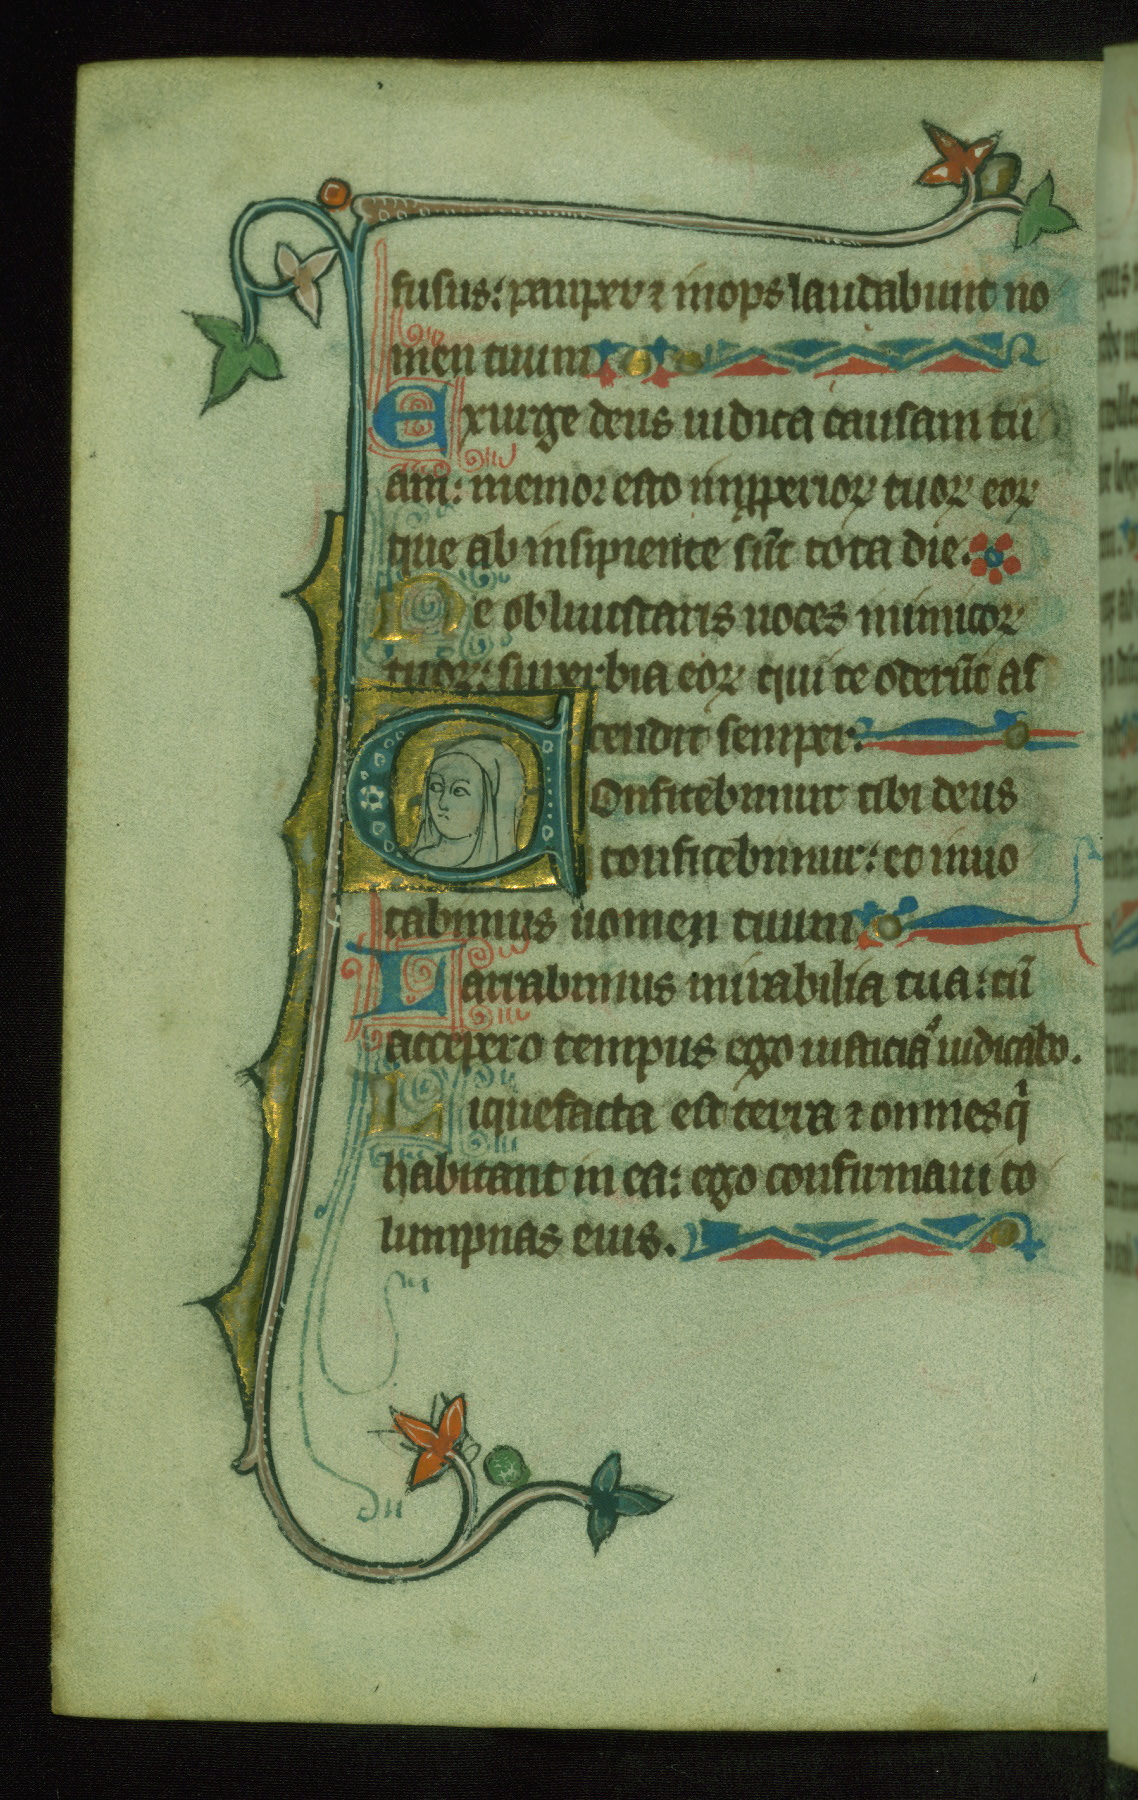 fusus: pauper ⁊ inops laudabunt no
men tuum
Exurge deus iudica causam tu
am: memor esto improperioꝝ tuoꝝ eoꝝ
que ab insipiente sūt tota die.
Ne obliuiscaris uoces inimicoꝝ
tuoꝝ: superbia eoꝝ qui te oderūt as
cendit semper.
Confitebimur tibi deus
confitebimur: et inuo
cabimus nomen tuum
Narrabimus mirabilia tua: cū
accepero tempus ego iusticiā iudicabo.
Liquefacta est terra ⁊ omnes q̇
habitant in ea: ego confirmaui co
lumpnas eius.